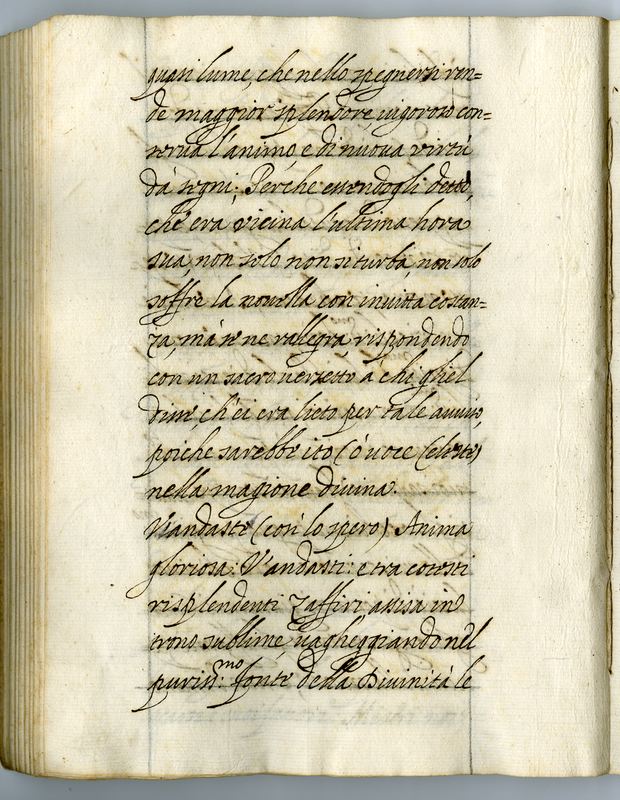 quasi lume, che nello spegnersi ren=
de maggior splendore uigoroso con=
serua l'animo, e di nuoua virtù
dà segni. Perche essendogli detto,
che era vicina l'ultima hora
sua, non solo non si turba, non solo
soffre la nouella con inuitta costan=
za, mà se ne rallegra rispondendo
con un sacro uersetto à chi gliel
disse ch'ei era lieto per tale auuiso,
poiche sarebbe ito (ò uoce Celeste)
nella magione diuina.
V'andasti (così lo spero) Anima
gloriosa: V'andasti: e tra cotesti
risplendenti Zaffiri assisa in
trono sublime, uagheggiando nel
puriss:mo fonte della Diuinità le